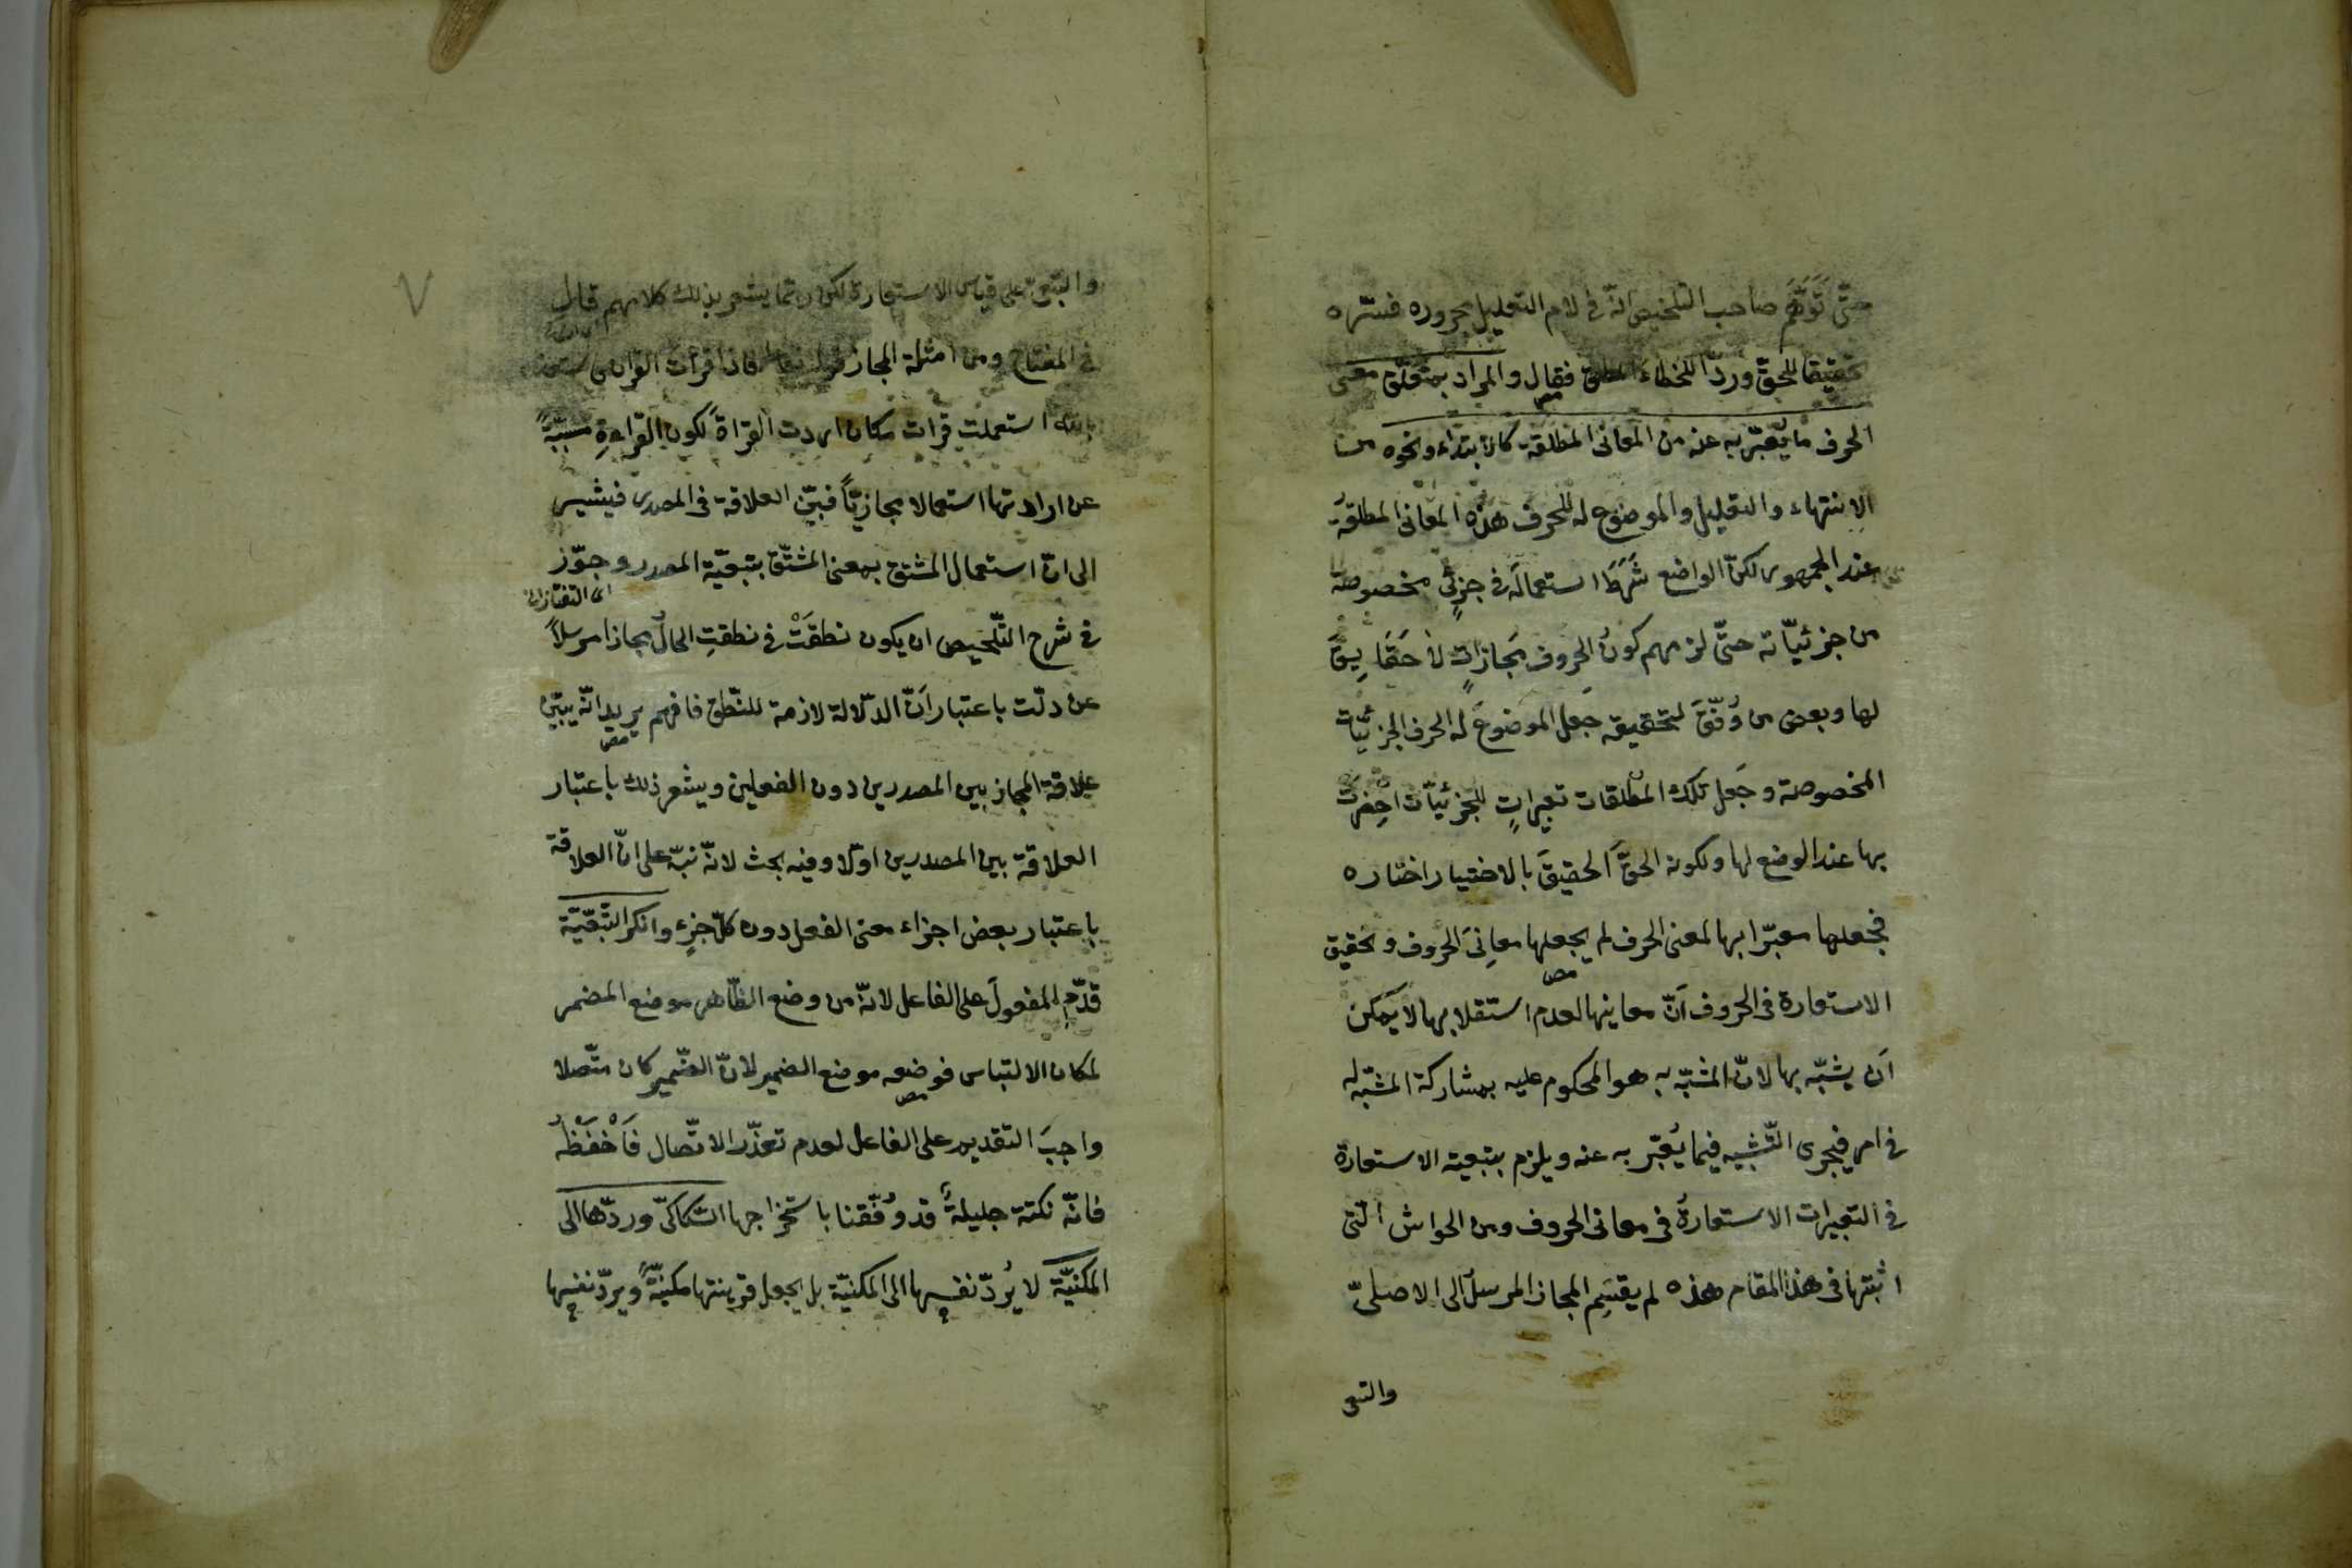 حتّى تَوَهَّمَ صاحب التلخيص انّه فى لام التعليل مجروره فسّره
تحقيقا للحقّ وردّا للخطاء فقال والمراد بمتعلّق معنى
الحرف ما يُعَبّر به عنه من المعانى المطلقة كالابتداء ونحوه من
الانتهاء والتعليل والموضوع له للحرف هذه المعانى المطلقة
عند الجمهور لكنّ الواضع شَرَطَ استعمالَه فى جزئىٍّ مخصوصة
من جزئيّاته حتّى لزمهم كونُ الحروف مَجازاتٍ لا حَقَايِقَ
لها وبعض من وُفّقَ لتحقيقه جَعَل الموضوعَ له الحرف الجزئيّات
المخصوصة وجَعل تلك المطلقات تعبيراتٍ للجزئيّات احضرت
بها عند الوضع لها ولكونه الحقَّ الحقيقَ بالاختيار اختاره
فجعلها معبّرا بها لمعنى الحرف لم يجعلها معانِىَ الحروف وتحقيق
مص
الاستعارة فى الحروف اَنّ معانيها لعدم استقلالها لا يمكن
اَن يشبّه بها لانّ المشبّه به هو المحكوم عليه بمشاركة المشبّه له
فى امر فيجرى التّشبيه فيما يُعَبّر به عنه ويلزم بتبعية الاستعارة
فى التعبيرات الاستعارةُ فى معانى الحروف ومن الحواش الّتى
اثبتها فى هذا المقام هذه لم يقسَمِ المجاز المرسل الى الاصلىّ
والتبعى
والتبعى على قياس الاستعارة لكن ربّما يشعر بذلك كلامهم قال
فى المفتاح ومن امثلة المجاز قوله تعالى فاذا قرأت القرآن فاستعذ
بالله استعملت قرات مكان اردت القراة لكون القراءةِ مسبّبةً
عن ارادتها استعمالا مجازيّاً فبيّن العلاقة فى المصدر فيشير
الى انّ استعمال المشتق بمعنى المشتقّ بتبعيّة المصدر وجوّز
اى التفتازانى
فى شرح التّلخيص ان يكون نطقَتْ فى نطقتِ الحالُ مجازا مرسلاً
عن دلّت باعتبار اَنّ الدّلالة لازمة للنّطق فافهم يريد انّه يبيّن
مص
علاقة المجاز بين المصدرين دون الفعلين ويشعر ذلك باعتبار
العلاقة بين المصدرين اوّلا وفيه بحث لانّه نبّه على انّ العلاقة
باعتبار بعض اجزاء معنى الفعل دون كلّ جزء وانكر التّبعيّة
قدّم المفعولَ على الفاعل لانّه من وضع الظّاهر موضع المضمر
لمكان الالتباس فوضعه موضع الضمير لانّ الضّمير كان متّصلا
مص
واجبَ التقديم على الفاعل لعدم تعذّر الاتّصال فَاَحْفَظْه
فانّه نكتة جليلةٌ قد وُفّقنا باستخراجها السّكّاكىّ وردّها الى
المكنيّة لا يُردّ نفسها الى المكنيّة بل يجعل قرينتها مكنيّةً ويردّ نفسها